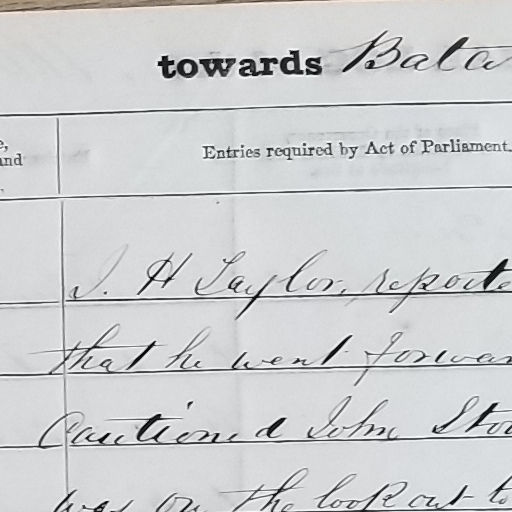 towards Bata
e,
and
Entries required by Act of Parliament.
J. H Taylor, reporte
that he went forwar
Cautioned John Sto
was on the look out to